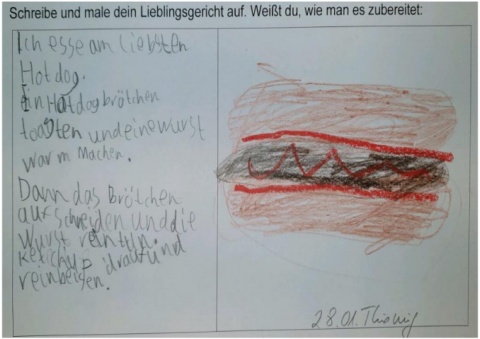 Schreibe und male dein Lieblingsgericht auf. Weißt du, wie man es zubereitet:
Ich esse am liebsten
Hotdog.
Ein Hotdogbrötchen
toasten und eine wurst
warm Machen.
Dann das Brötchen
aufschneiden und die
wurst rein
ketchup drauf und
reinbeißen.
28.01.